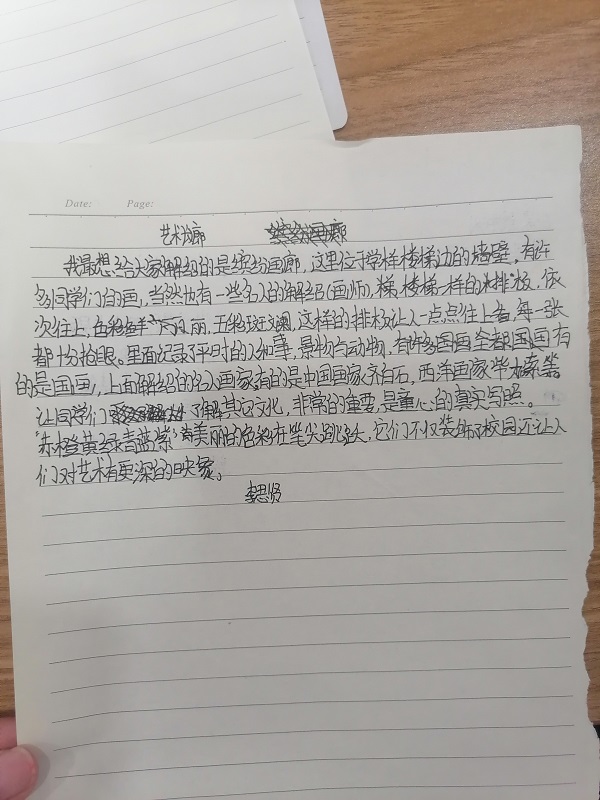 Date: Page:
艺术长廊
我最想给大家解绍的是缤纷画廊，这里位于学样楼梯边的墙壁，有许
多同学们的画，当然也有一些名人的解绍(画师)，梯楼梯一样的排板，依
次往上，色彩鲜丽，五彩斑斓，这样的排板让人一点点往上看，每一张
都十分抢眼。里面纪录了平时的人和事，景物与动物，有许多国画全都国国有
的是国画，上面解绍的名人画家有的是中国画家齐白石，西洋画家毕加索等
让同学们了解其它文化，非常的重要，是童心的真实写照。
"赤橙黄绿青蓝紫"美丽的色彩在笔尖跳跃，它们不仅装饰了校园还让人
们对艺术有更深的映象。
李思贤